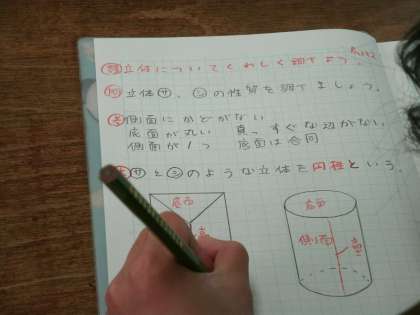 立体についてくわしく調べよう。
問 立体サ、シの性質を調べましょう。
側面にかどがない
底面が丸い 真っすぐな辺がない
側面が1つ 底面は合同
サとシのような立体を円柱という。
底面
高
底面
側面
高さ